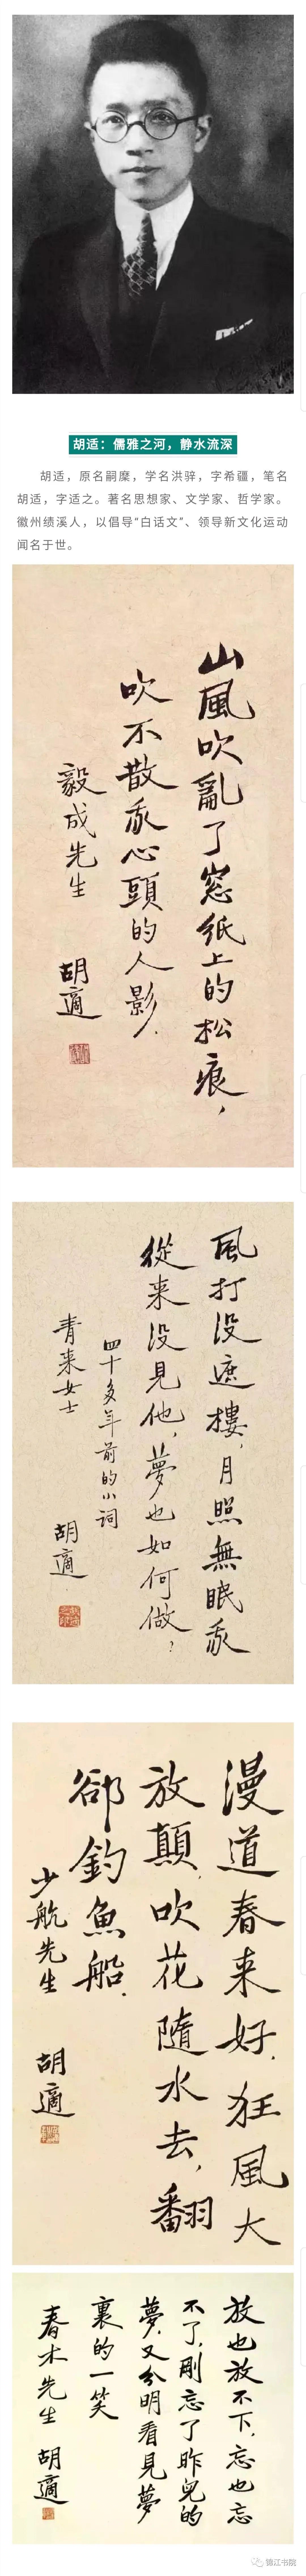 胡适：儒雅之河，静水流深
胡适，原名嗣穈，学名洪骍，字希疆，笔名
胡适，字适之。著名思想家、文学家、哲学家。
徽州绩溪人，以倡导“白话文”、领导新文化运动
闻名于世。
山風吹亂了窓紙上的松痕，
吹不散我心頭的人影．
毅成先生
胡適
風打没遮樓，月照無眠我
從来没見他，夢也如何做？
四十多年前的小詞
青来女士
胡適
漫道春来好．狂風大
放顛，吹花隨水去，翻
郤釣魚船．
少航先生 胡適
放也放不下，忘也忘
不了，剛忘了昨兒的
夢，又分明看見夢
裏的一笑
春木先生 胡適
锦江书院